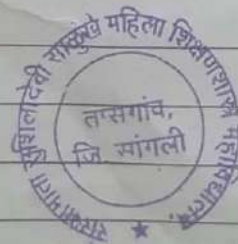 संस्थामाता सुशिलादेवी साळुंखे महिला शिक्षणशास्त्र महाविद्यालय,
तासगांव,
जि. सांगली